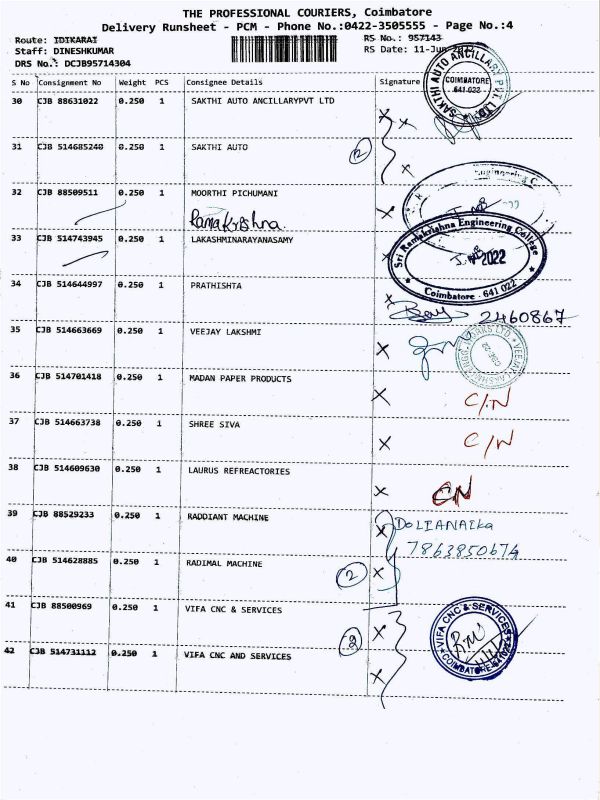 THE PROFESSIONAL COURIERS, Coimbatore
Delivery Runsheet - PCM - Phone No.:0422-3505555 - Page No.:4
Route: IDIKARAI
RS No.: 957143
Staff: DINESHKUMAR
RS Date: 11-Jun
DRS No.: DCJB95714304
S No Consignment No Weight PCS Consignee Details Signature
30 CJB 88631022 0.250 1 SAKTHI AUTO ANCILLARYPVT LTD
SAKTHI AUTO ANCILLARY PVT. LTD.
COIMBATORE
641 022
31 CJB 514685240 0.250 1 SAKTHI AUTO
2
32 CJB 88509511 0.250 1 MOORTHI PICHUMANI
Engineering C
Ramakrishna
33 CJB 514743945 0.250 1 LAKASHMINARAYANASAMY
Sri Ramakrishna Engineering College
2022
Coimbatore - 641 022
34 CJB 514644997 0.250 1 PRATHISHTA
2460867
35 CJB 514663669 0.250 1 VEEJAY LAKSHMI
36 CJB 514701418 0.250 1 MADAN PAPER PRODUCTS
C/N
37 CJB 514663738 0.250 1 SHREE SIVA
C/N
38 CJB 514609630 0.250 1 LAURUS REFREACTORIES
CN
39 CJB 88529233 0.250 1 RADDIANT MACHINE
7863850674
40 CJB 514628885 0.250 1 RADIMAL MACHINE
2
41 CJB 88500969 0.250 1 VIFA CNC & SERVICES
VIFA CNC & SERVICES
2
42 CJB 514731112 0.250 1 VIFA CNC AND SERVICES